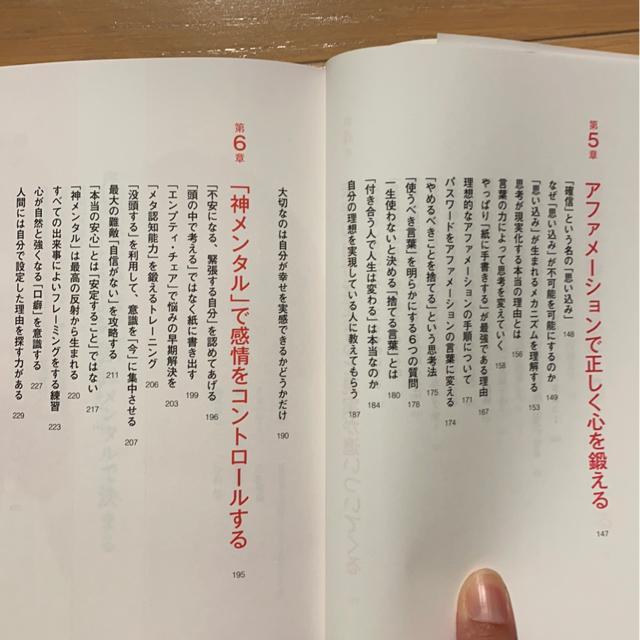 第5章 アファメーションで正しく心を鍛える 147
「確信」という名の「思い込み」 148
なぜ「思い込み」が不可能を可能にするのか 149
「思い込み」が生まれるメカニズムを理解する 153
思考が現実化する本当の理由とは 156
言葉の力によって思考を変えていく 158
やっぱり「紙に手書きする」が最強である理由 167
理想的なアファメーションの手順について 171
パスワードをアファメーションの言葉に変える 174
「やめるべきことを捨てる」という思考法 175
「使うべき言葉」を明らかにする6つの質問 178
一生使わないと決める「捨てる言葉」とは 180
「付き合う人で人生は変わる」は本当なのか 184
自分の理想を実現している人に教えてもらう 187
大切なのは自分が幸せを実感できるかどうかだけ 190
第6章 「神メンタル」で感情をコントロールする 195
「不安になる、緊張する自分」を認めてあげる 196
「頭の中で考える」ではなく紙に書き出す 199
「エンプティ・チェア」で悩みの早期解決を 203
「メタ認知能力」を鍛えるトレーニング 206
「没頭する」を利用して、意識を「今」に集中させる 207
最大の難敵「自信がない」を攻略する 211
「本当の安心」とは「安定すること」ではない 217
「神メンタル」は最高の反射から生まれる 220
すべての出来事によいフレーミングをする練習 223
心が自然と強くなる「口癖」を意識する 227
人間には自分で設定した理由を探す力がある 229